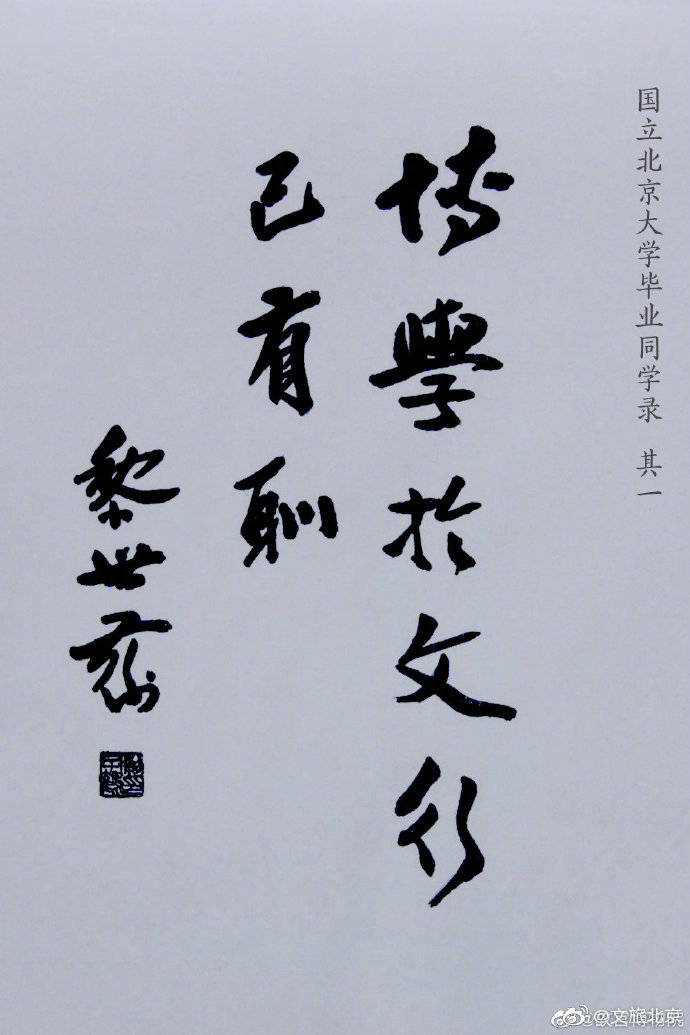 国立北京大学毕业同学录 其一
博學於文行
己有恥
黎世蘅
@文旅北京